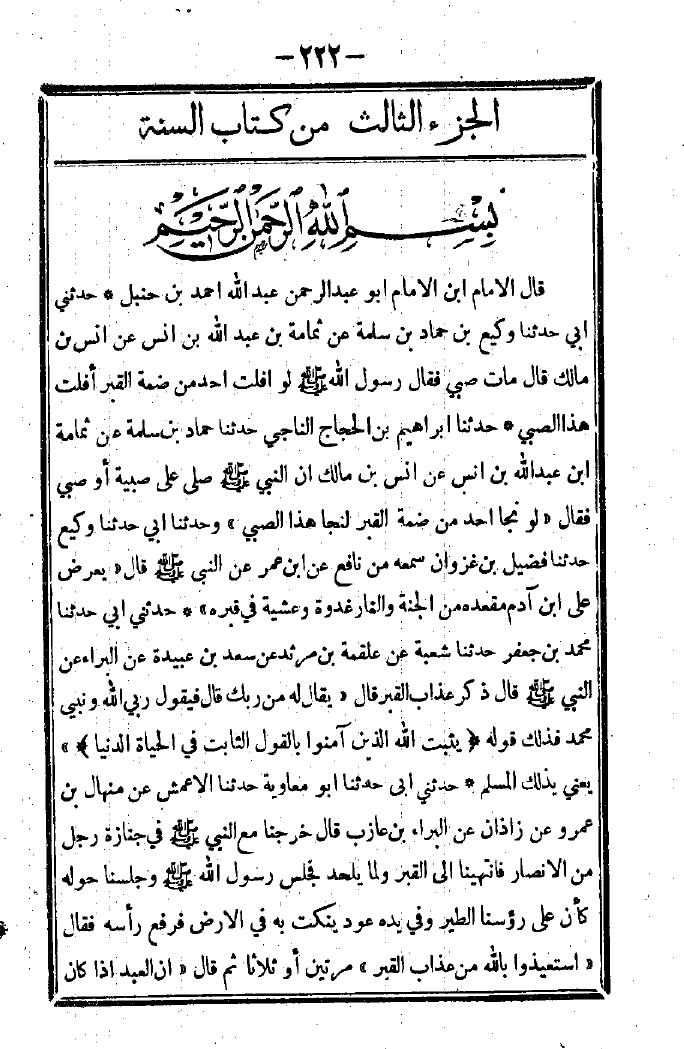 — ٢٢٢ —
الجزء الثالث من كتاب السنة
بسم الله الرحمن الرحيم
قال الامام ابن الامام ابو عبدالرحمن عبد الله احمد بن حنبل * حدثني
ابي حدثنا وكيع بن حماد بن سلمة عن ثمامة بن عبد الله بن انس عن انس بن
مالك قال مات صبي فقال رسول الله ﷺ لو افلت احد من ضمة القبر أفلت
هذا الصبي * حدثنا ابراهيم بن الحجاج الناجي حدثنا حماد بن سلمة عن ثمامة
ابن عبدالله بن انس عن انس بن مالك ان النبي ﷺ صلى على صبية أو صبي
فقال « لو نجا احد من ضمة القبر لنجا هذا الصبي » وحدثنا ابي حدثنا وكيع
حدثنا فضيل بن غزوان سمعه من نافع عن ابن عمر عن النبي ﷺ قال « يعرض
على ابن آدم مقعده من الجنة والنار غدوة وعشية في قبره » * حدثني ابي حدثنا
محمد بن جعفر حدثنا شعبة عن علقمة بن مرثد عن سعد بن عبيدة عن البراء عن
النبي ﷺ قال ذكر عذاب القبر قال « يقال له من ربك قال فيقول ربي الله ونبيي
محمد فذلك قوله ﴿ يثبت الله الذين آمنوا بالقول الثابت في الحياة الدنيا ﴾ »
يعني بذلك المسلم * حدثني ابى حدثنا ابو معاوية حدثنا الاعمش عن منهال بن
عمرو عن زاذان عن البراء بن عازب قال خرجنا مع النبي ﷺ في جنازة رجل
من الانصار فانتهينا الى القبر ولما يلحد فجلس رسول الله ﷺ وجلسنا حوله
كأن على رؤسنا الطير وفي يده عود ينكت به في الارض فرفع رأسه فقال
« استعيذوا بالله من عذاب القبر » مرتين أو ثلاثا ثم قال « ان العبد اذا كان